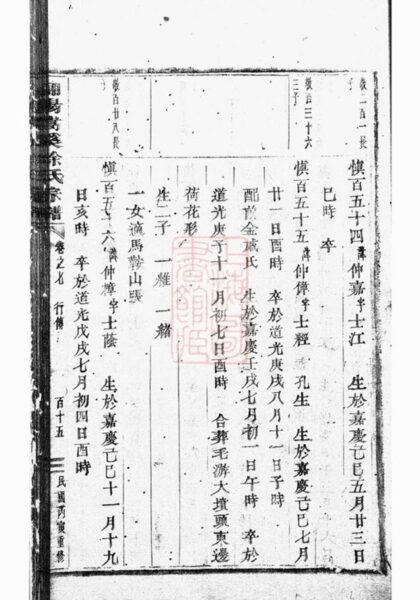 徵百一百一長子
慎百五十四 諱仲嘉 字士江 生於嘉慶己巳五月廿三日
巳時 卒
徵百三十六三子
慎百五十五 諱仲璋 字士經 孔生 生於嘉慶己巳七月
廿一日酉時 卒於道光庚戌八月十一日子時
配前金戚氏 生於嘉慶壬戌七月初一日午時 卒於
道光庚子十一月初七日酉時 合葬毛游大墳頭東邊
荷花形
生二子 一維 一緒
一女適馬鞍山張
徵百廿八長子
慎百五十六 諱仲樟 字士蔭 生於嘉慶己巳十一月十九
日亥時 卒於道光戊戌七月初四日酉時
徐氏宗譜 卷之七 行傳 百十五 民國丙寅重修